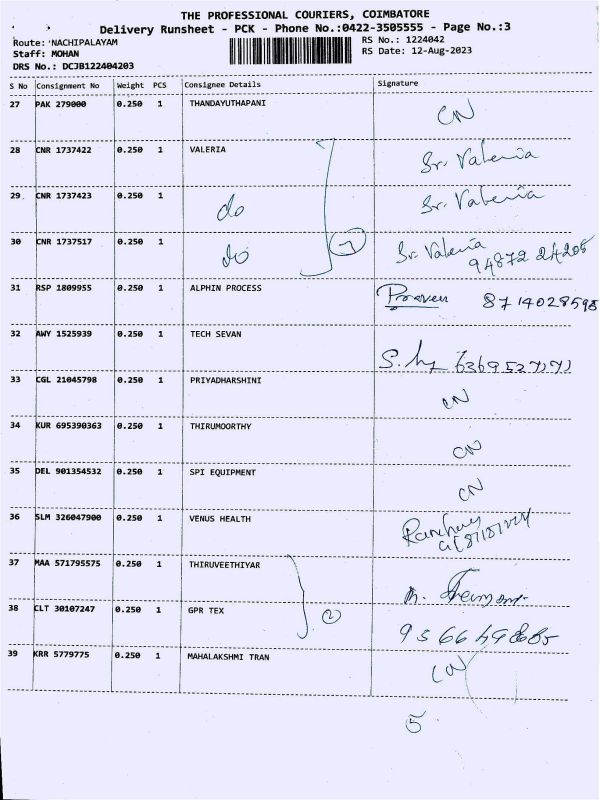 THE PROFESSIONAL COURIERS, COIMBATORE
Delivery Runsheet - PCK - Phone No.:0422-3505555 - Page No.:3
Route: NACHIPALAYAM
RS No.: 1224042
Staff: MOHAN
RS Date: 12-Aug-2023
DRS No.: DCJB122404203
S No Consignment No Weight PCS Consignee Details Signature
27 PAK 279000 0.250 1 THANDAYUTHAPANI CN
28 CNR 1737422 0.250 1 VALERIA Sr. Valeria
29 CNR 1737423 0.250 1 do Sr. Valeria
30 CNR 1737517 0.250 1 do Sr. Valeria
94872 24205
31 RSP 1809955 0.250 1 ALPHIN PROCESS Praveen 8714028598
32 AWY 1525939 0.250 1 TECH SEVAN
33 CGL 21045798 0.250 1 PRIYADHARSHINI CN
34 KUR 695390363 0.250 1 THIRUMOORTHY CN
35 DEL 901354532 0.250 1 SPI EQUIPMENT CN
36 SLM 326047900 0.250 1 VENUS HEALTH
37 MAA 571795575 0.250 1 THIRUVEETHIYAR
38 CLT 30107247 0.250 1 GPR TEX 2
39 KRR 5779775 0.250 1 MAHALAKSHMI TRAN CN
5